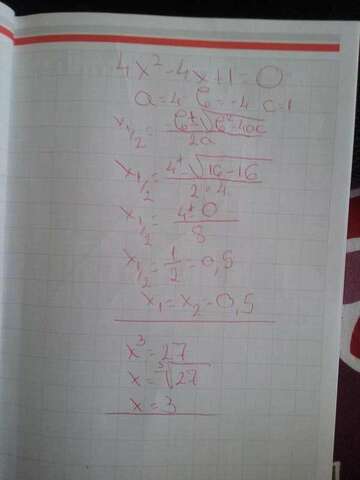 4x² - 4x + 1 = 0
a = 4 b = -4 c = 1
x₁/₂ = (b ± √(b² - 4ac)) / 2a
x₁/₂ = (4 ± √(16 - 16)) / (2 · 4)
x₁/₂ = (4 ± 0) / 8
x₁/₂ = 1/2 = 0,5
x₁ = x₂ = 0,5
x³ = 27
x = ³√27
x = 3